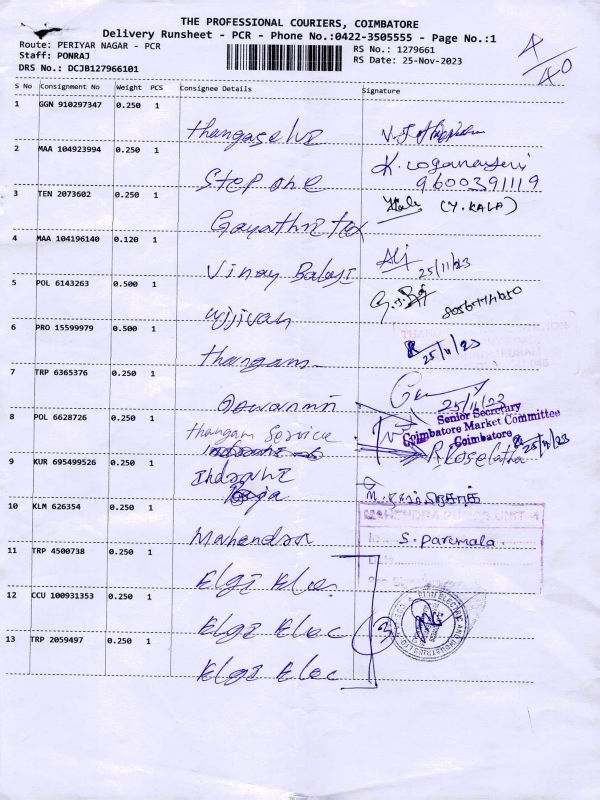 THE PROFESSIONAL COURIERS, COIMBATORE
Delivery Runsheet - PCR - Phone No.:0422-3505555 - Page No.:1
Route: PERIYAR NAGAR - PCR
Staff: PONRAJ
DRS No.: DCJB127966101
RS No.: 1279661
RS Date: 25-Nov-2023
4/40
S No Consignment No Weight PCS Consignee Details Signature
1 GGN 910297347 0.250 1
thangaselvi
2 MAA 104923994 0.250 1
Step one K. Loganayaki
9600391119
3 TEN 2073602 0.250 1
Gayathri tex (Y. KALA)
4 MAA 104196140 0.120 1
Vinay Balaji 25/11/23
5 POL 6143263 0.500 1
ujjivan
6 PRO 15599979 0.500 1
thangam 25/11/23
7 TRP 6365376 0.250 1
25/11/23
8 POL 6628726 0.250 1
Thangam Service
Senior Secretary
Coimbatore Market Committee
Coimbatore
25/11/23
9 KUR 695499526 0.250 1
Indrani
10 KLM 626354 0.250 1
Mahendra S. Paremala
MAHENDRA PUMPS UNIT
11 TRP 4500738 0.250 1
Elgi Elec
12 CCU 100931353 0.250 1
Elgi Elec 3
13 TRP 2059497 0.250 1
Elgi Elec